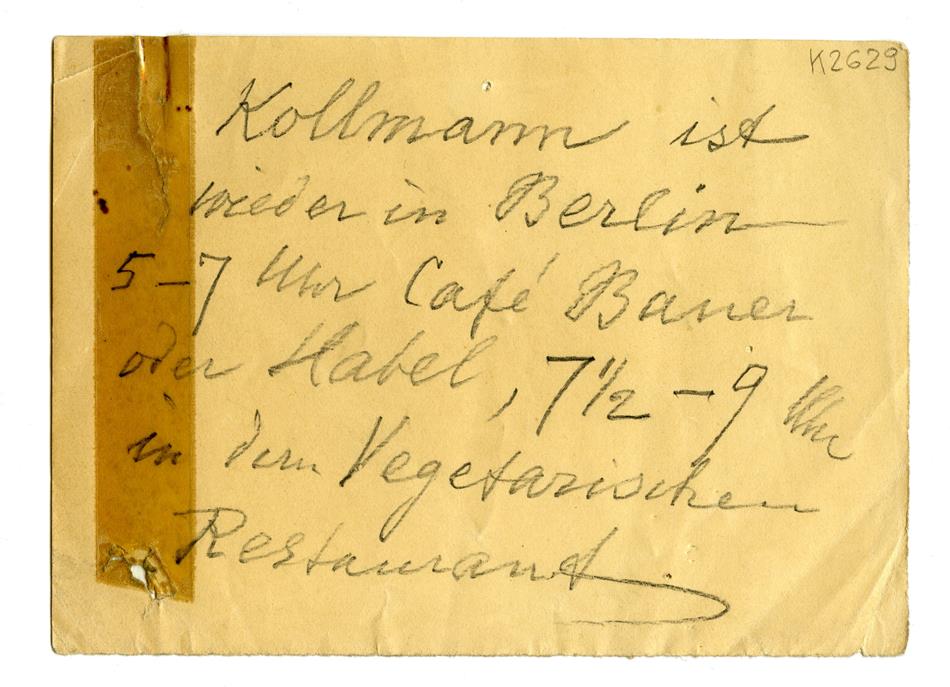 K2629
Kollmann ist
wieder in Berlin
5–7 Uhr Café Bauer
oder Habel, 7 1/2 – 9 Uhr
in dem Vegetarischen
Restaurant